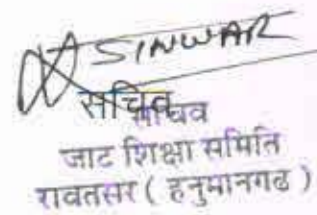 SINWAR
सचिव
सचिव
जाट शिक्षा समिति
रावतसर ( हनुमानगढ )